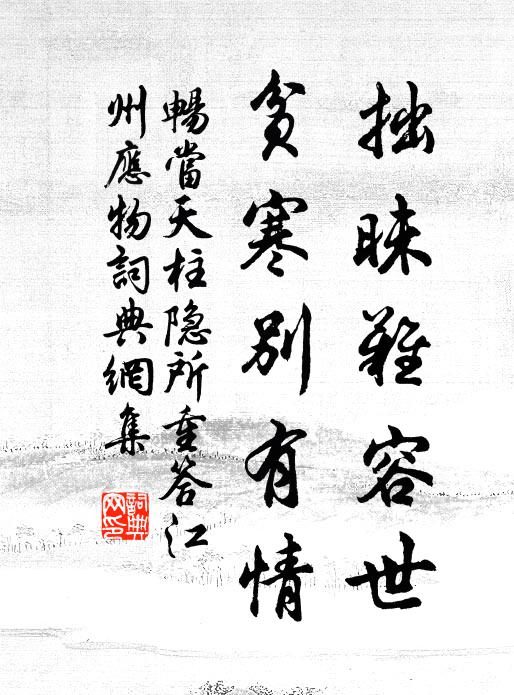 拙昧難容世
貧寒別有情
暢當天柱隐所重答江
州應物詞典網集
詞典
网印